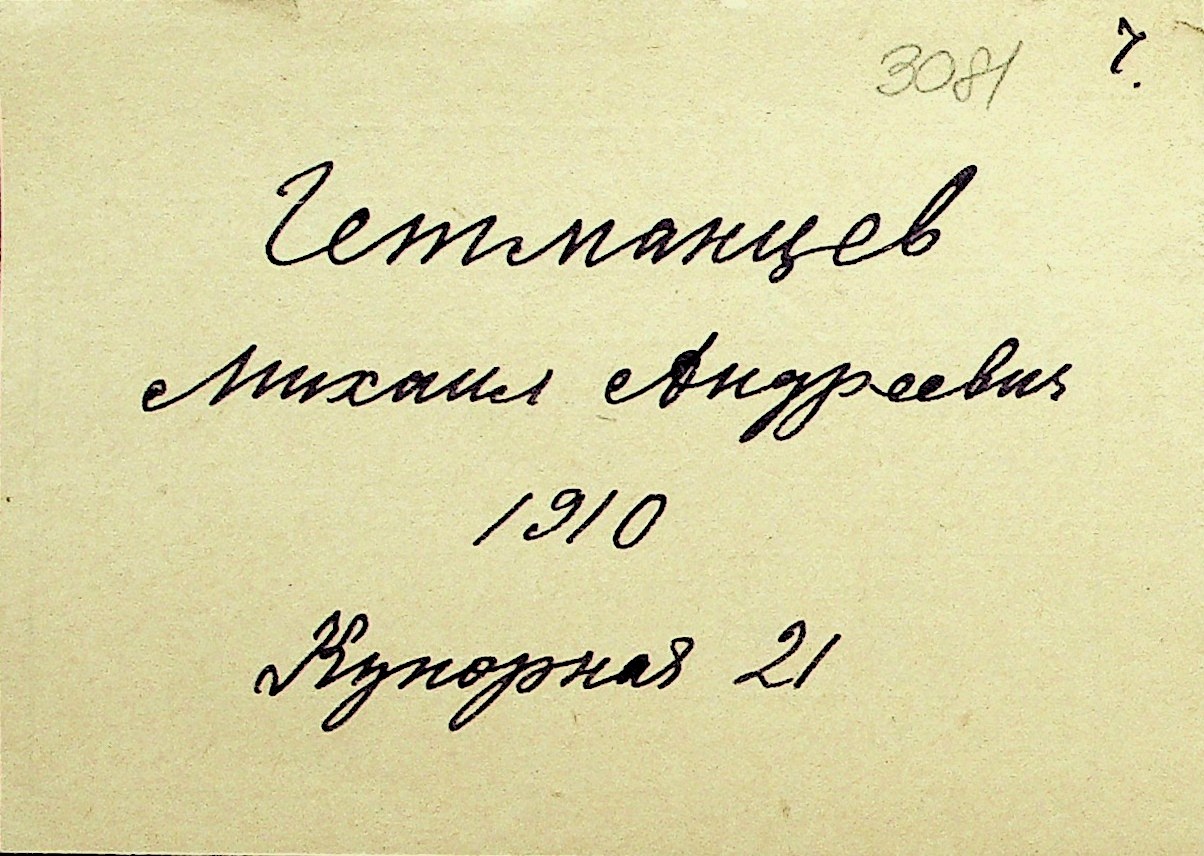 3081 7.
Гетманцев
Михаил Андреевич
1910
Купорная 21